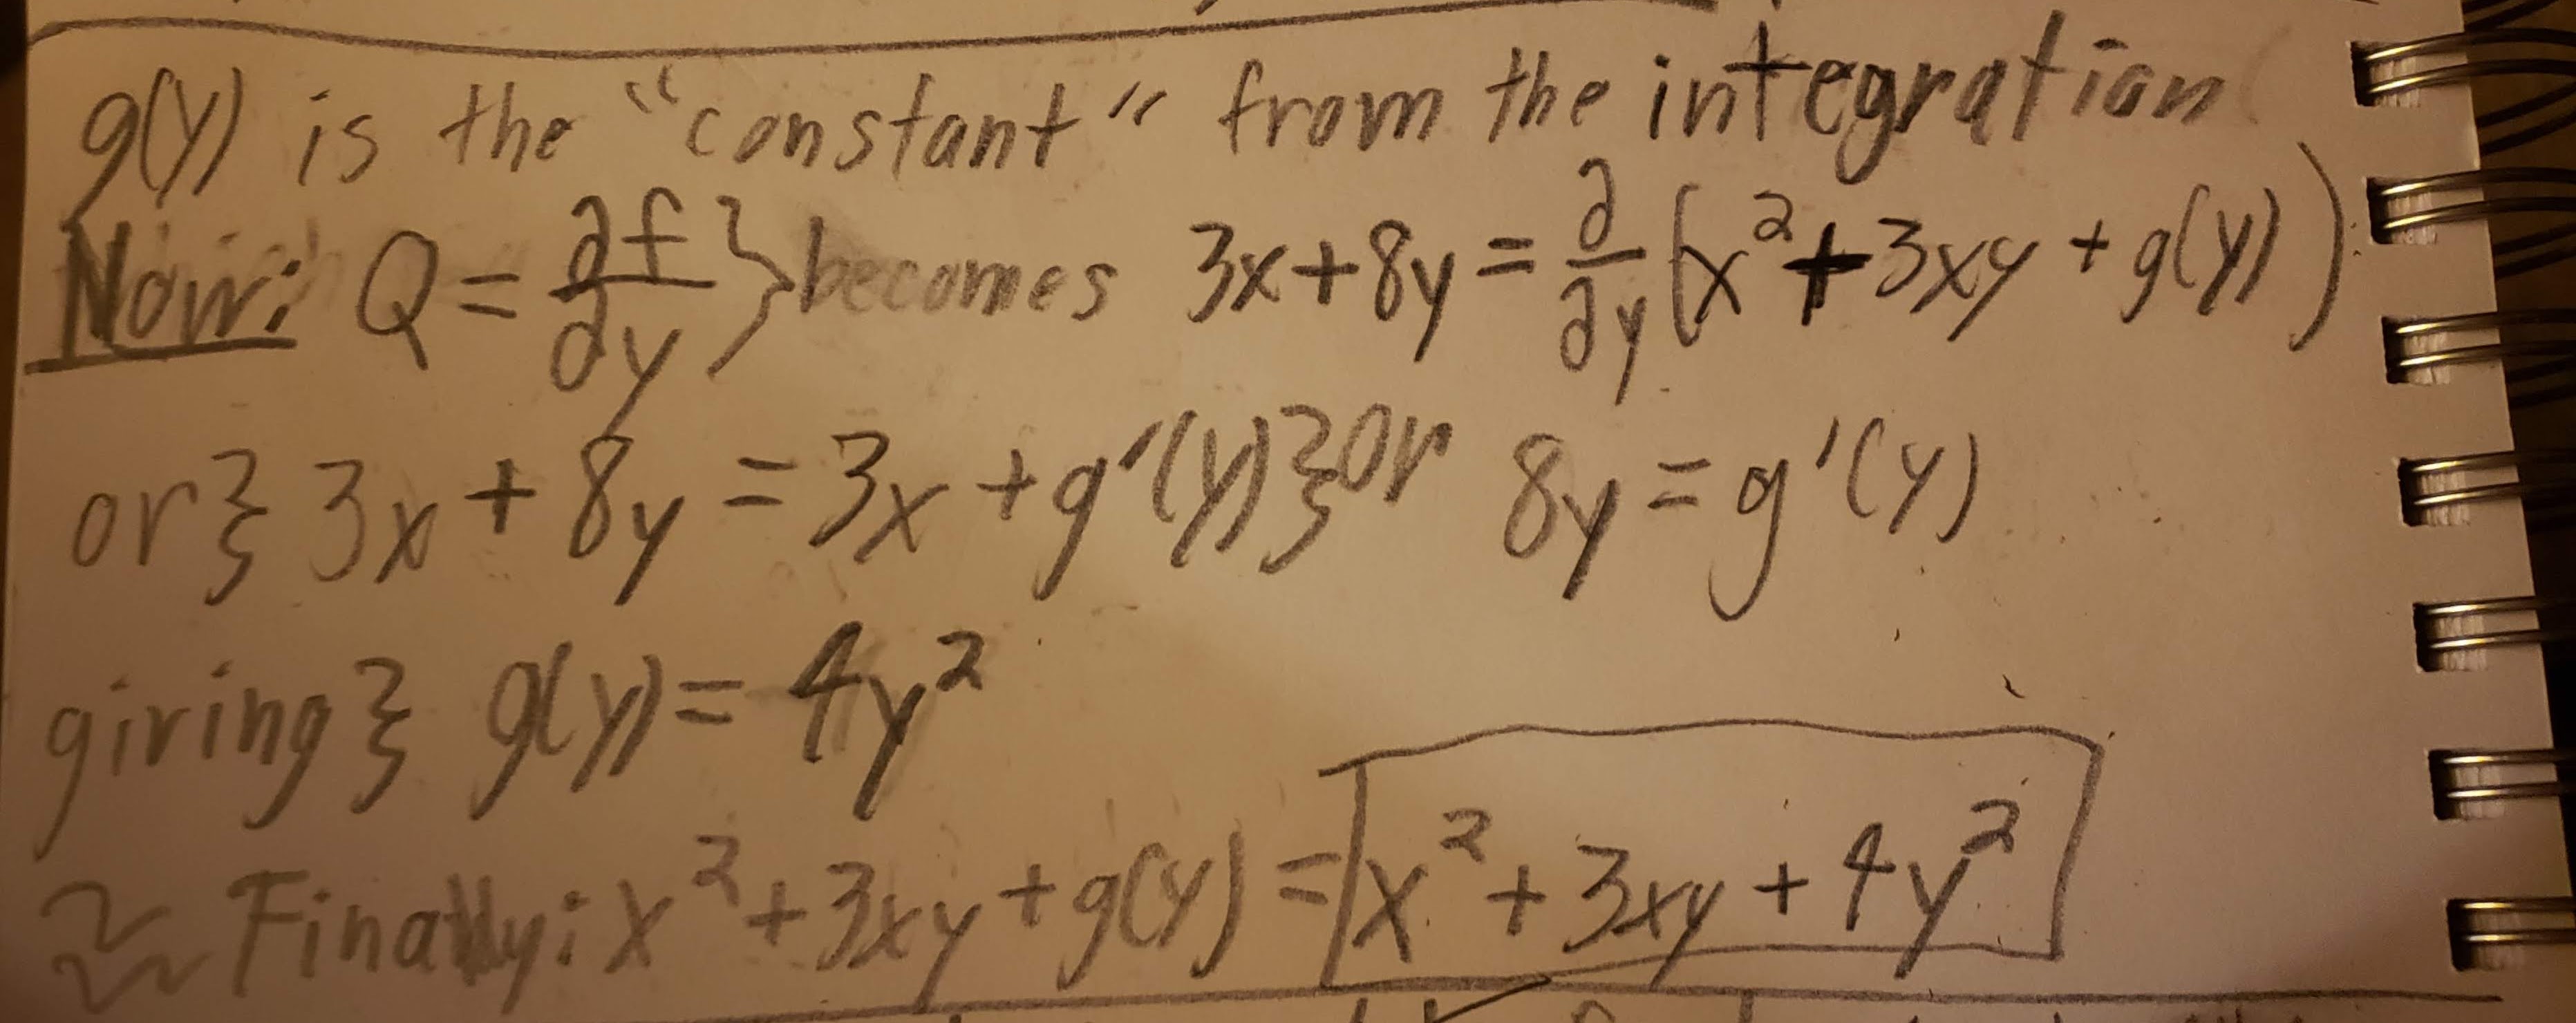 g(y) is the "constant" from the integration
Now: Q = ∂f/∂y } becomes 3x+8y = ∂/∂y (x²+3xy + g(y))
or} 3x + 8y = 3x + g'(y)} or 8y = g'(y)
giving} g(y) = 4y²
Finally: x²+3xy+g(y) = x²+3xy+4y²